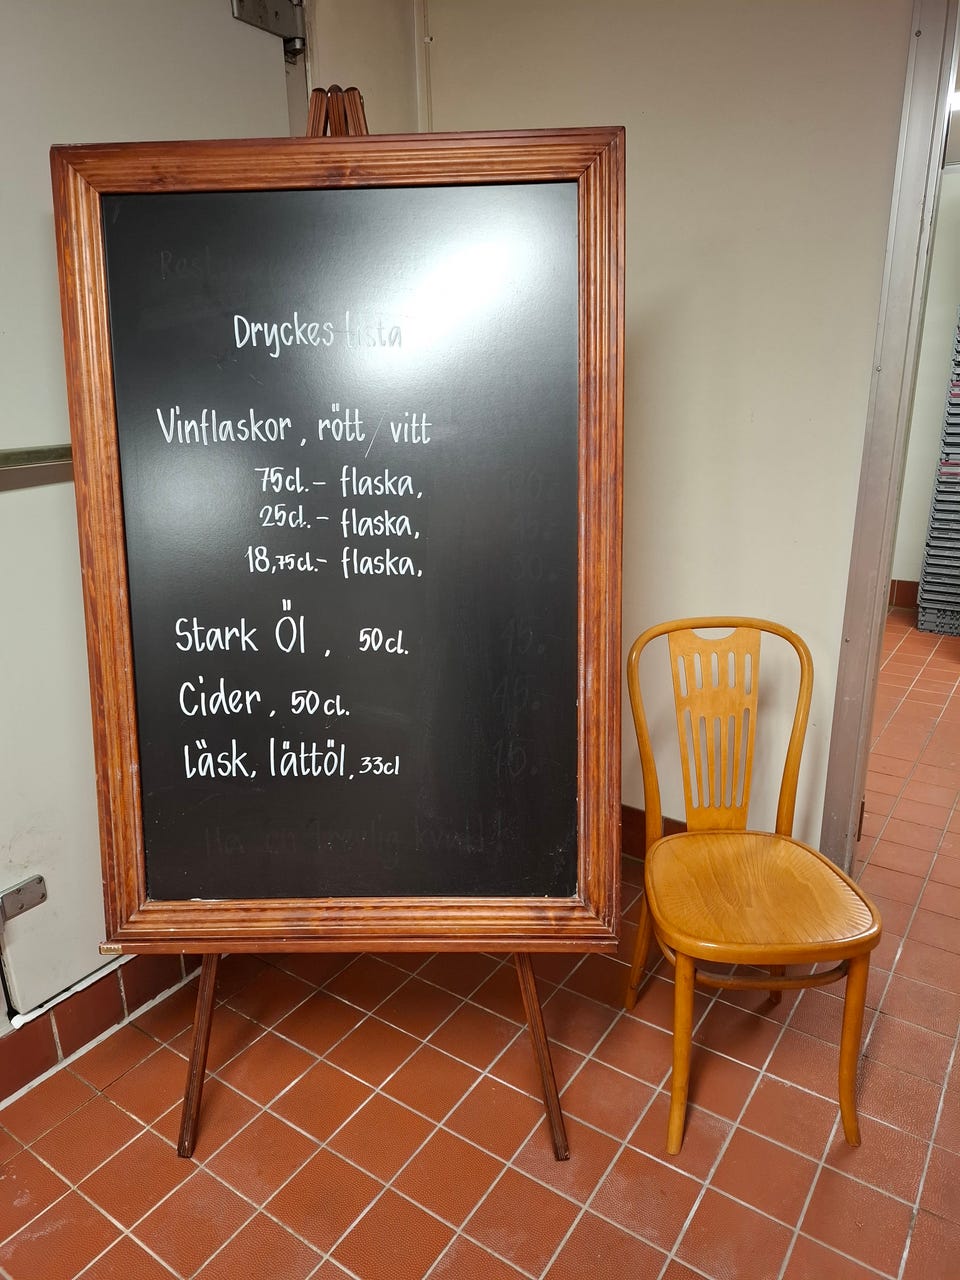 Dryckes lista
Vinflaskor, rött/vitt
75cl.- flaska,
25cl.- flaska,
18,75cl.- flaska,
Stark Öl, 50cl.
Cider, 50cl.
Läsk, lättöl, 33cl